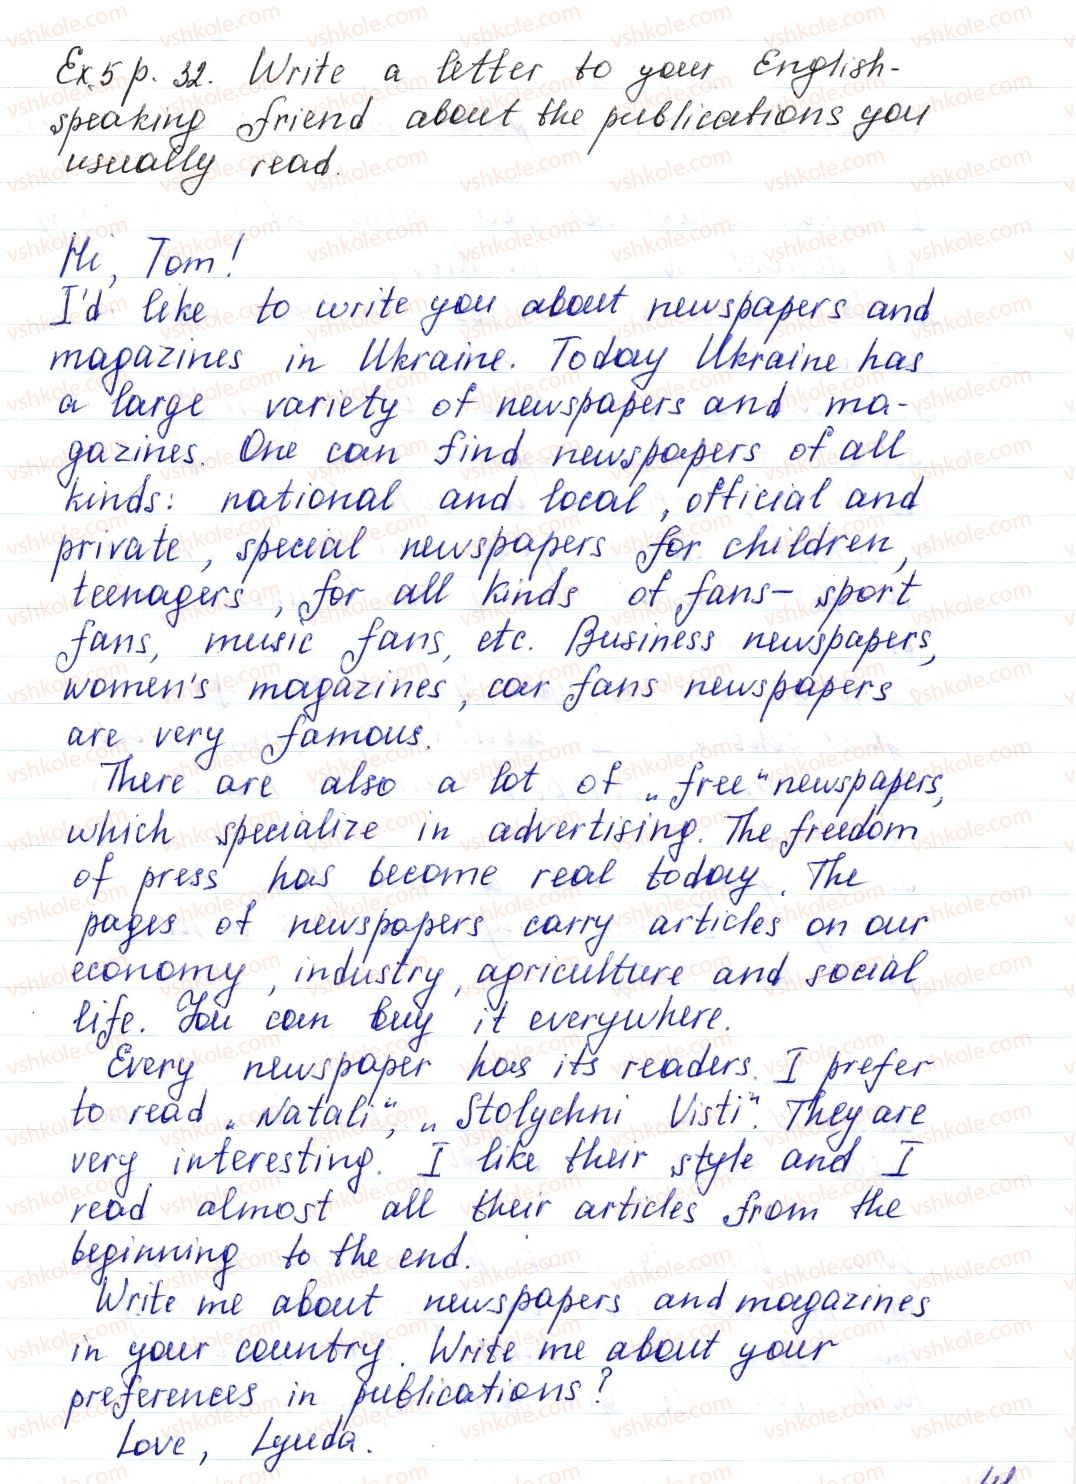 Ex.5 p. 32. Write a letter to your English-
speaking friend about the publications you
usually read.
Hi, Tom!
I'd like to write you about newspapers and
magazines in Ukraine. Today Ukraine has
a large variety of newspapers and ma-
gazines. One can find newspapers of all
kinds: national and local, official and
private, special newspapers for children,
teenagers, for all kinds of fans – sport
fans, music fans, etc. Business newspapers,
women's magazines, car fans newspapers
are very famous.
There are also a lot of „free“ newspapers,
which specialize in advertising. The freedom
of press has become real today. The
pages of newspapers carry articles on our
economy, industry, agriculture and social
life. You can buy it everywhere.
Every newspaper has its readers. I prefer
to read „Natali“, „Stolychni Visti“. They are
very interesting. I like their style and I
read almost all their articles from the
beginning to the end.
Write me about newspapers and magazines
in your country. Write me about your
preferences in publications?
Love, Lyuda.